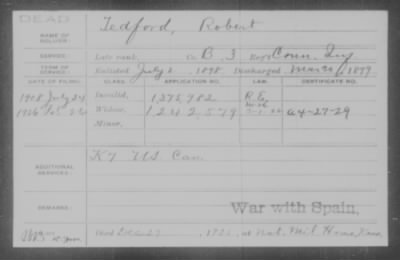 DEAD
NAME OF SOLDIER: Tedford, Robert
SERVICE: Late rank, Co. B, 3 Reg't Conn. Inf
TERM OF SERVICE: Enlisted July 2, 1898 Discharged Mar 20, 1899
DATE OF FILING. CLASS. APPLICATION NO. LAW. CERTIFICATE NO.
1908 July 24 Invalid, 1,375,982
1926 Widow, 1242579 A4-27-29
Minor,
ADDITIONAL SERVICES: K 7 U.S. Cav.
REMARKS: War with Spain,
Died 1925, at Nat. Mil. Home,